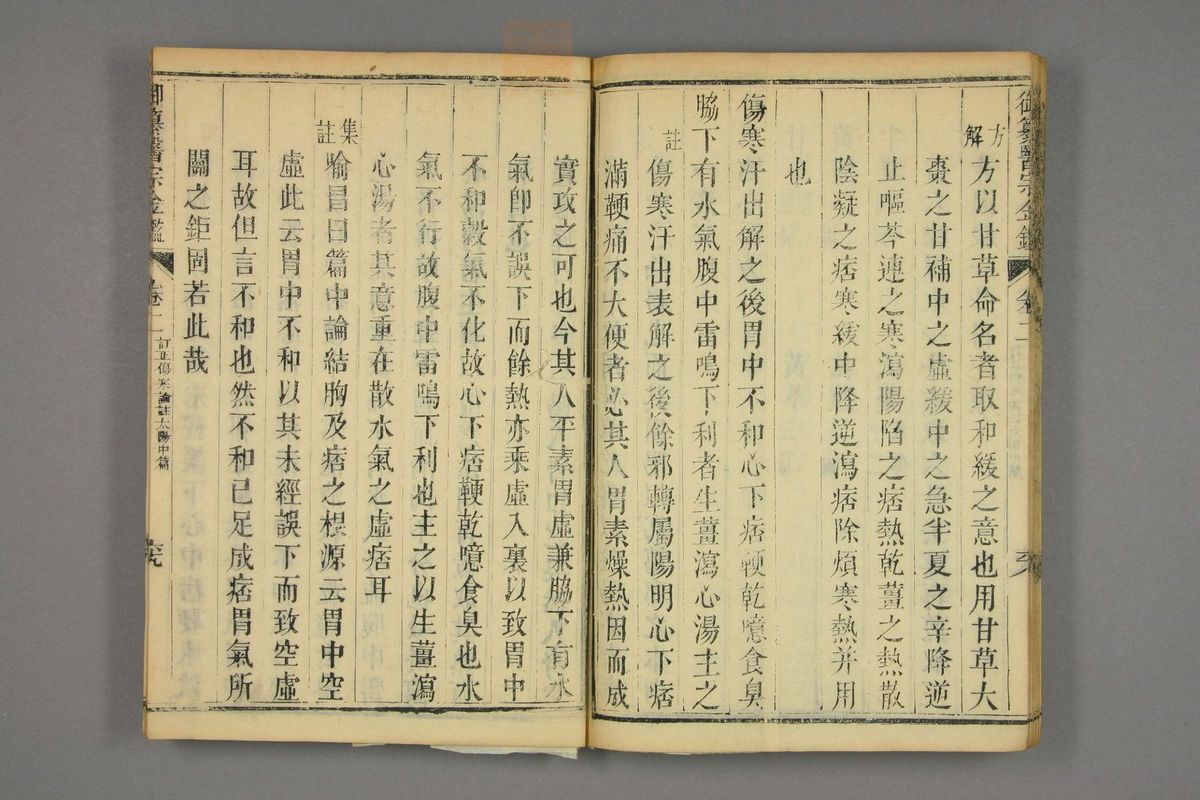 御纂醫宗金鑑 卷二 六八
方解
方以甘草命名者取和緩之意也用甘草大
棗之甘補中之虛緩中之急半夏之辛降逆
止嘔芩連之寒瀉陽陷之痞熱乾薑之熱散
陰凝之痞寒緩中降逆瀉痞除煩寒熱并用
也
傷寒汗出解之後胃中不和心下痞鞕乾噫食臭
脇下有水氣腹中雷鳴下利者生薑瀉心湯主之
註
傷寒汗出表解之後餘邪轉屬陽明心下痞
滿鞕痛不大便者必其人胃素燥熱因而成
實攻之可也今其人平素胃虛兼脇下有水
氣卽不誤下而餘熱亦乘虛入裏以致胃中
不和穀氣不化故心下痞鞕乾噫食臭也水
氣不行故腹中雷鳴下利也主之以生薑瀉
心湯者其意重在散水氣之虛痞耳
集註
喻昌曰篇中論結胸及痞之根源云胃中空
虛此云胃中不和以其未經誤下而致空虛
耳故但言不和也然不和已足成痞胃氣所
關之鉅固若此哉
御纂醫宗金鑑 卷二 訂正傷寒論註太陽中篇 六九